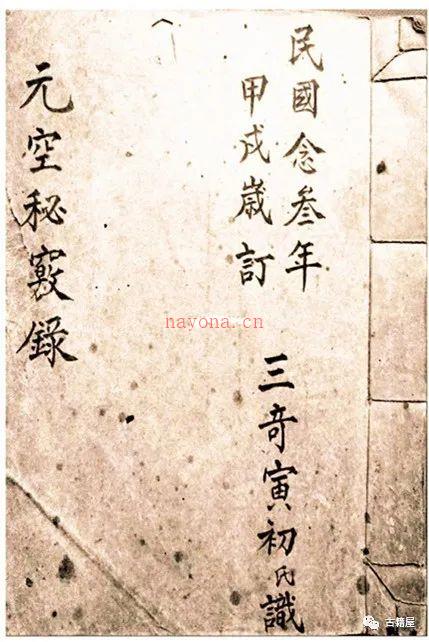 民國念叁年
甲戌歲訂
三奇寅初氏識
元空秘竅錄
nayona.cn
古籍屋